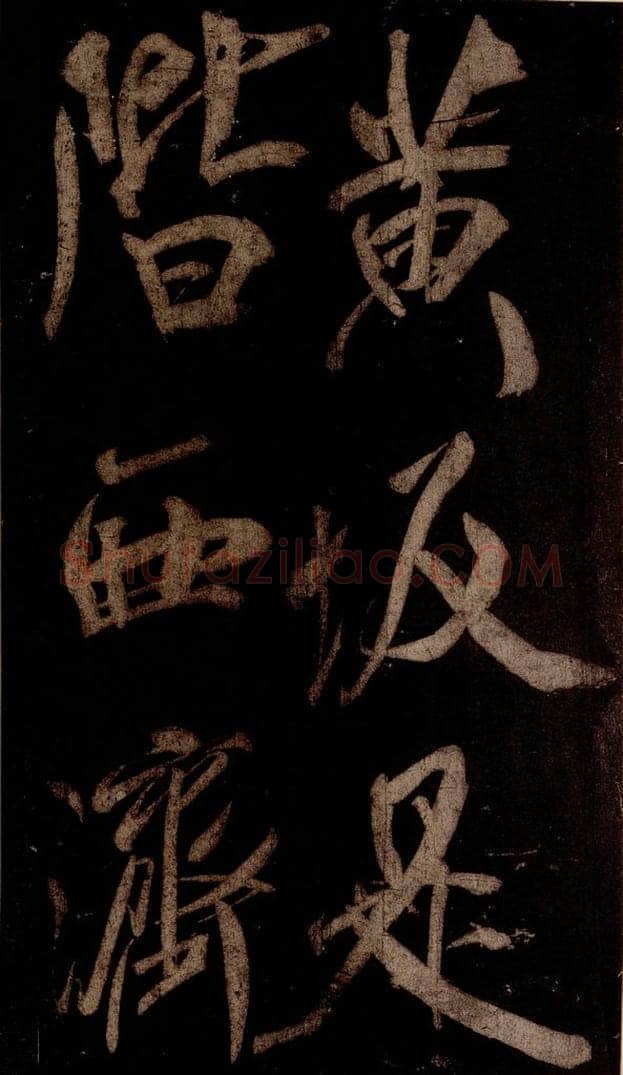 黄坂是
階西濟
Shufaziliao.COM